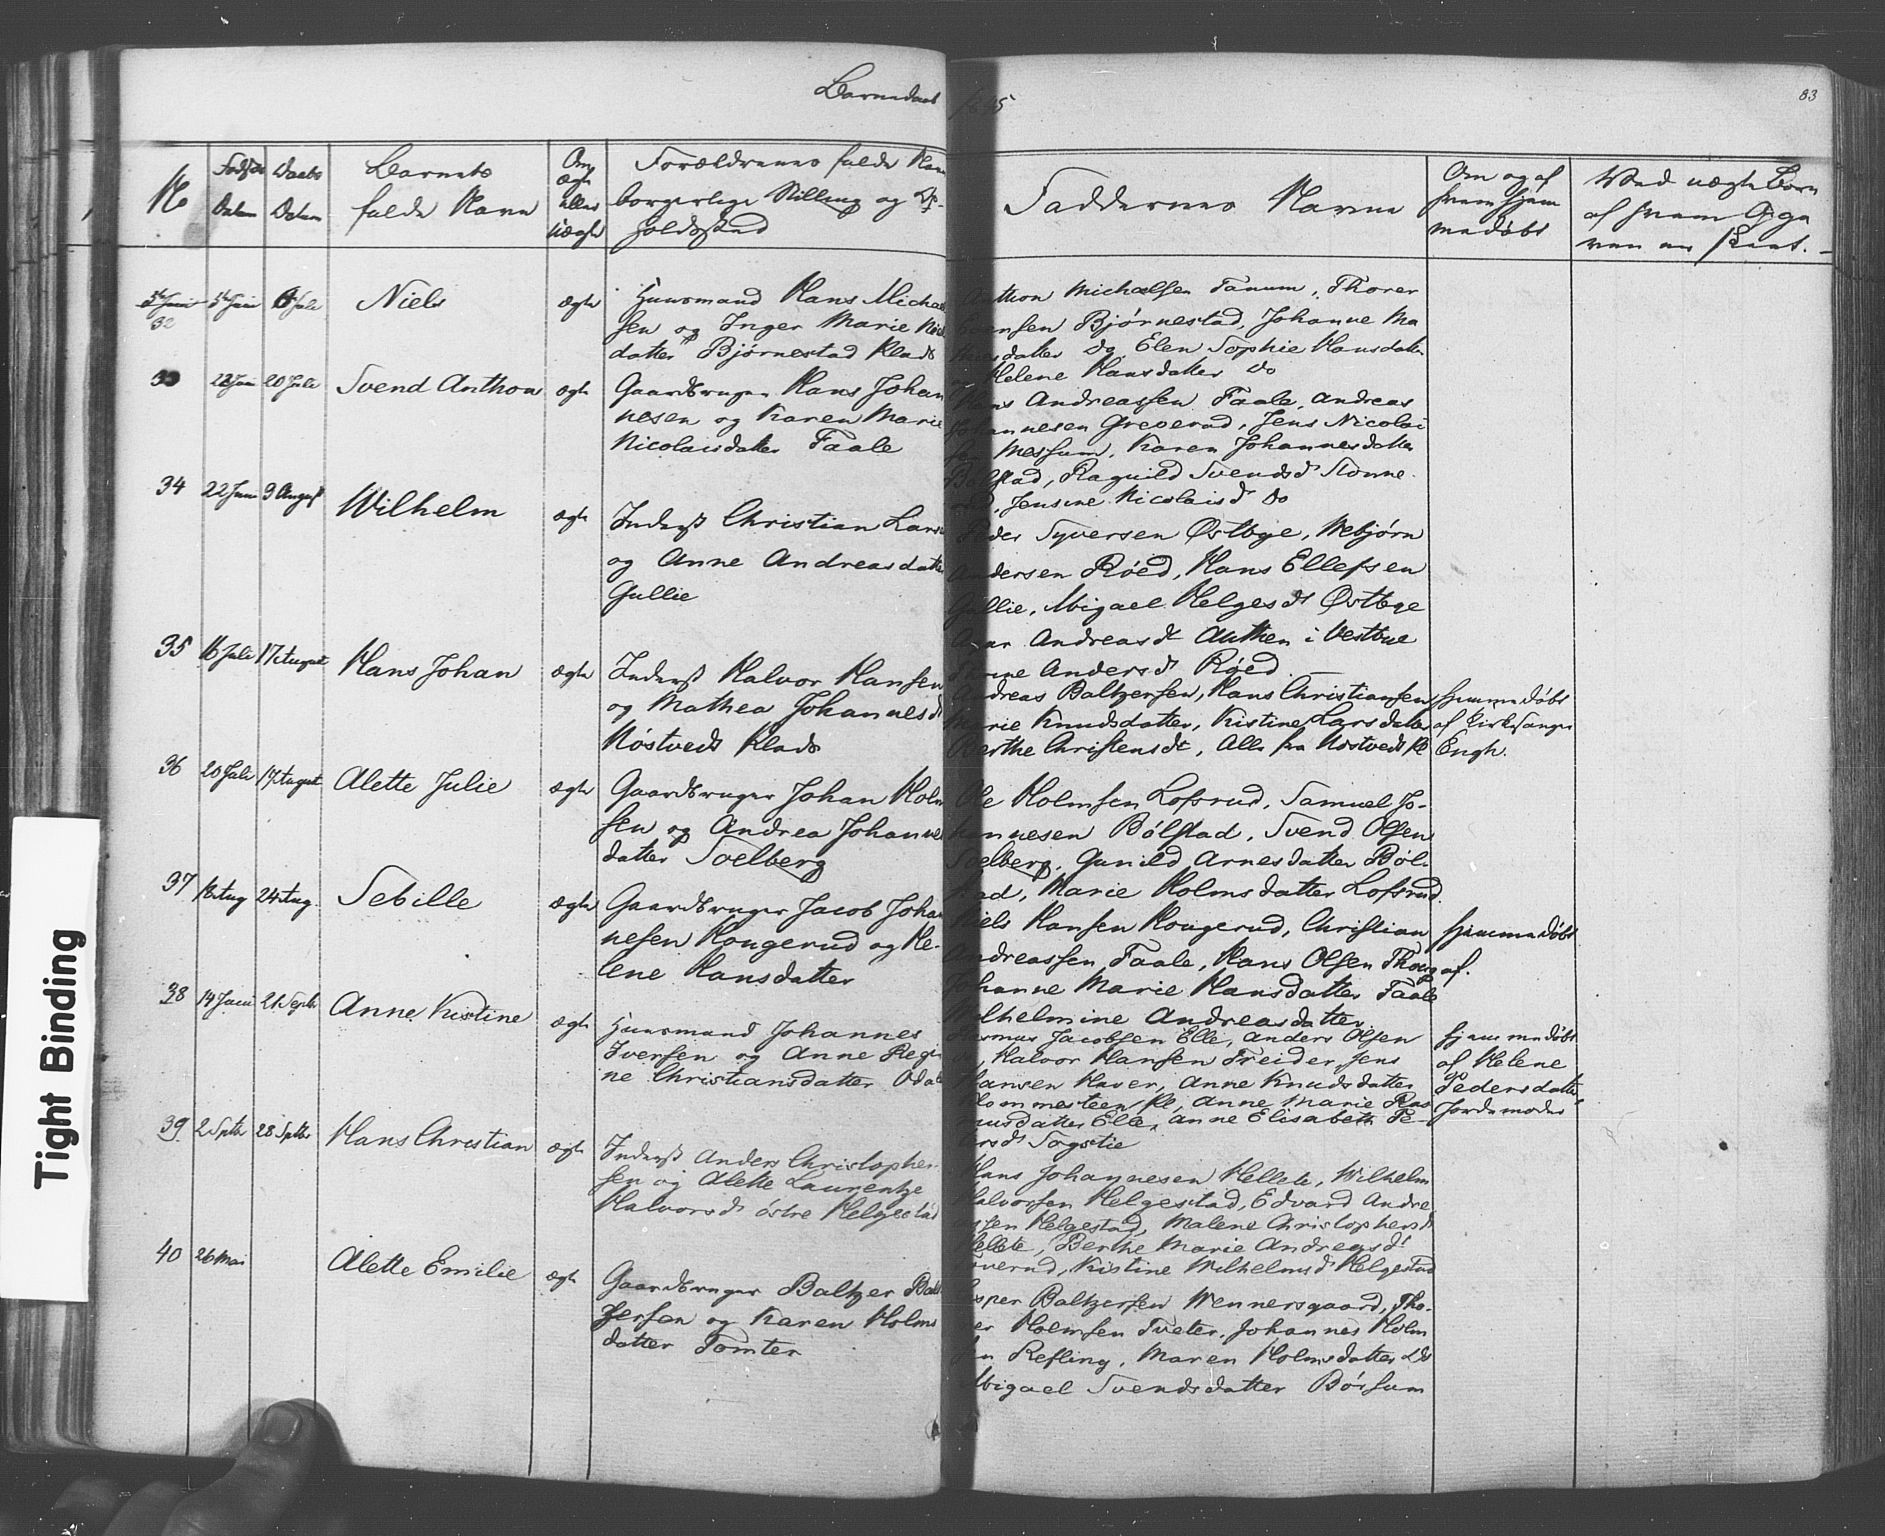 Barnedaab 1845
83
№
Fødsels Datum
Daabs Datum
Barnets
fulde Navn
Om
ægte
eller
uægte
Forældrenes fulde Navn
borgerlige Stilling og Op-
holdssted
Faddernes Navne
Om og af
hvem hjem
medøbt
Ved uægte Børn
af hvem Opga
ven er skeet.
32
5te Juni
6 Juli
Niels
ægte
Huusmand Hans Michael
sen og Inger Marie
datter Bjørnestad Klads
Anthon Michelsen Fanum, Thorer
Evensen Bjørnestad, Johanne Ma
datter do, Elen Sophie Hansdatter
Helene Hansdatter do
33
22 Juni
20 Juli
Svend Anthon
ægte
Gaardbruger Hans Johan
nesen og Karen Marie
Nicolaisdatter Faale
Hans Andreassen Faale, Andreas
Johannesen Greverud, Jens Nicolai
sen Messum, Karen Johannesdatter
Bølstad, Ragnild Svendsd
Jensine Nicolaisd do
34
22 Juni
3 August
Wilhelm
ægte
Inderst Christian Lars
og Anne Andreasdatter
Gullie
Peder Syversen Østbye, Webjørn
Andersen Røed, Hans Ellefsen
Gullie, Abigael Helgesdt Østbye
Andreasdt Authen i Vestbye
Andersdt Røed
35
16 Juli
17 August
Hans Johan
ægte
Inderst Halvor Hansen
og Mathea Johannesdt
Nøstvedt Klads
Andreas Baltzersen, Hans Christiansen
Marie Knudsdatter, Kistine Larsdatter
Berthe Christensdt, Alle fra Nøstvedt Kl
Hjemmedøbt
af Kirkesanger
Engh.
36
20 Juli
17 August
Alette Julie
ægte
Gaardbruger Johan Holm
sen og Andrea Johannes
datter Soelberg
Ole Holmsen Lofsrud, Samuel Jo-
hannesen Bølstad, Svend Olsen
Soelberg, Gunild Arnesdatter Bøl-
stad, Marie Holmsdatter Lofsrud
37
18 Aug
24 Aug.
Sebille
ægte
Gaardbruger Jacob Johan
nesen Hougerud og He-
lene Hansdatter
Niels Hansen Hougerud, Christian
Andreassen Faale, Hans Olsen
Johanne Marie Hansdatter Faale
Wilhelmine Andreasdatter
Hjemmedøbt
af.
38
14 Juni
21 Septbr
Anne Kistine
ægte
Huusmand Johannes
Iversen og Anne Regi
ne Christiansdatter
Rasmus Jacobsen Elle, Anders Olsen
do, Halvor Hansen Treider, Jens
Hansen Haver, Anne Knudsdatter
Kl, Anne Marie Ras
musdatter Elle, Anne Elisabeth Pe-
dersdt Sogstie
Hjemmedøbt
af Helene
Pedersdatter
Jordemoder
39
2 Sptbr
28 Sptbr
Hans Christian
ægte
Inderst Anders Christopher
sen og Alette Laurentze
Halvorsdt østre Helgestad
Hans Johannesen Hellete, Wilhelm
Halvorsen Helgestad, Edvard Andre
assen Helgestad, Malene Christophersdt
Hellete, Berthe Marie Andreasdt
Kistine Wilhelmsdt Helgestad
40
26 Mai
Alette Emilie
ægte
Gaardbruger Baltzer Balt
zersen og Karen Holms
datter Tomter
Jesper Baltzersen Wennersgaard, Tho-
rer Holmsen Tveter, Johannes Holm
sen Refling, Maren Holmsdatter
Abigael Svendsdatter Børsum
Tight Binding